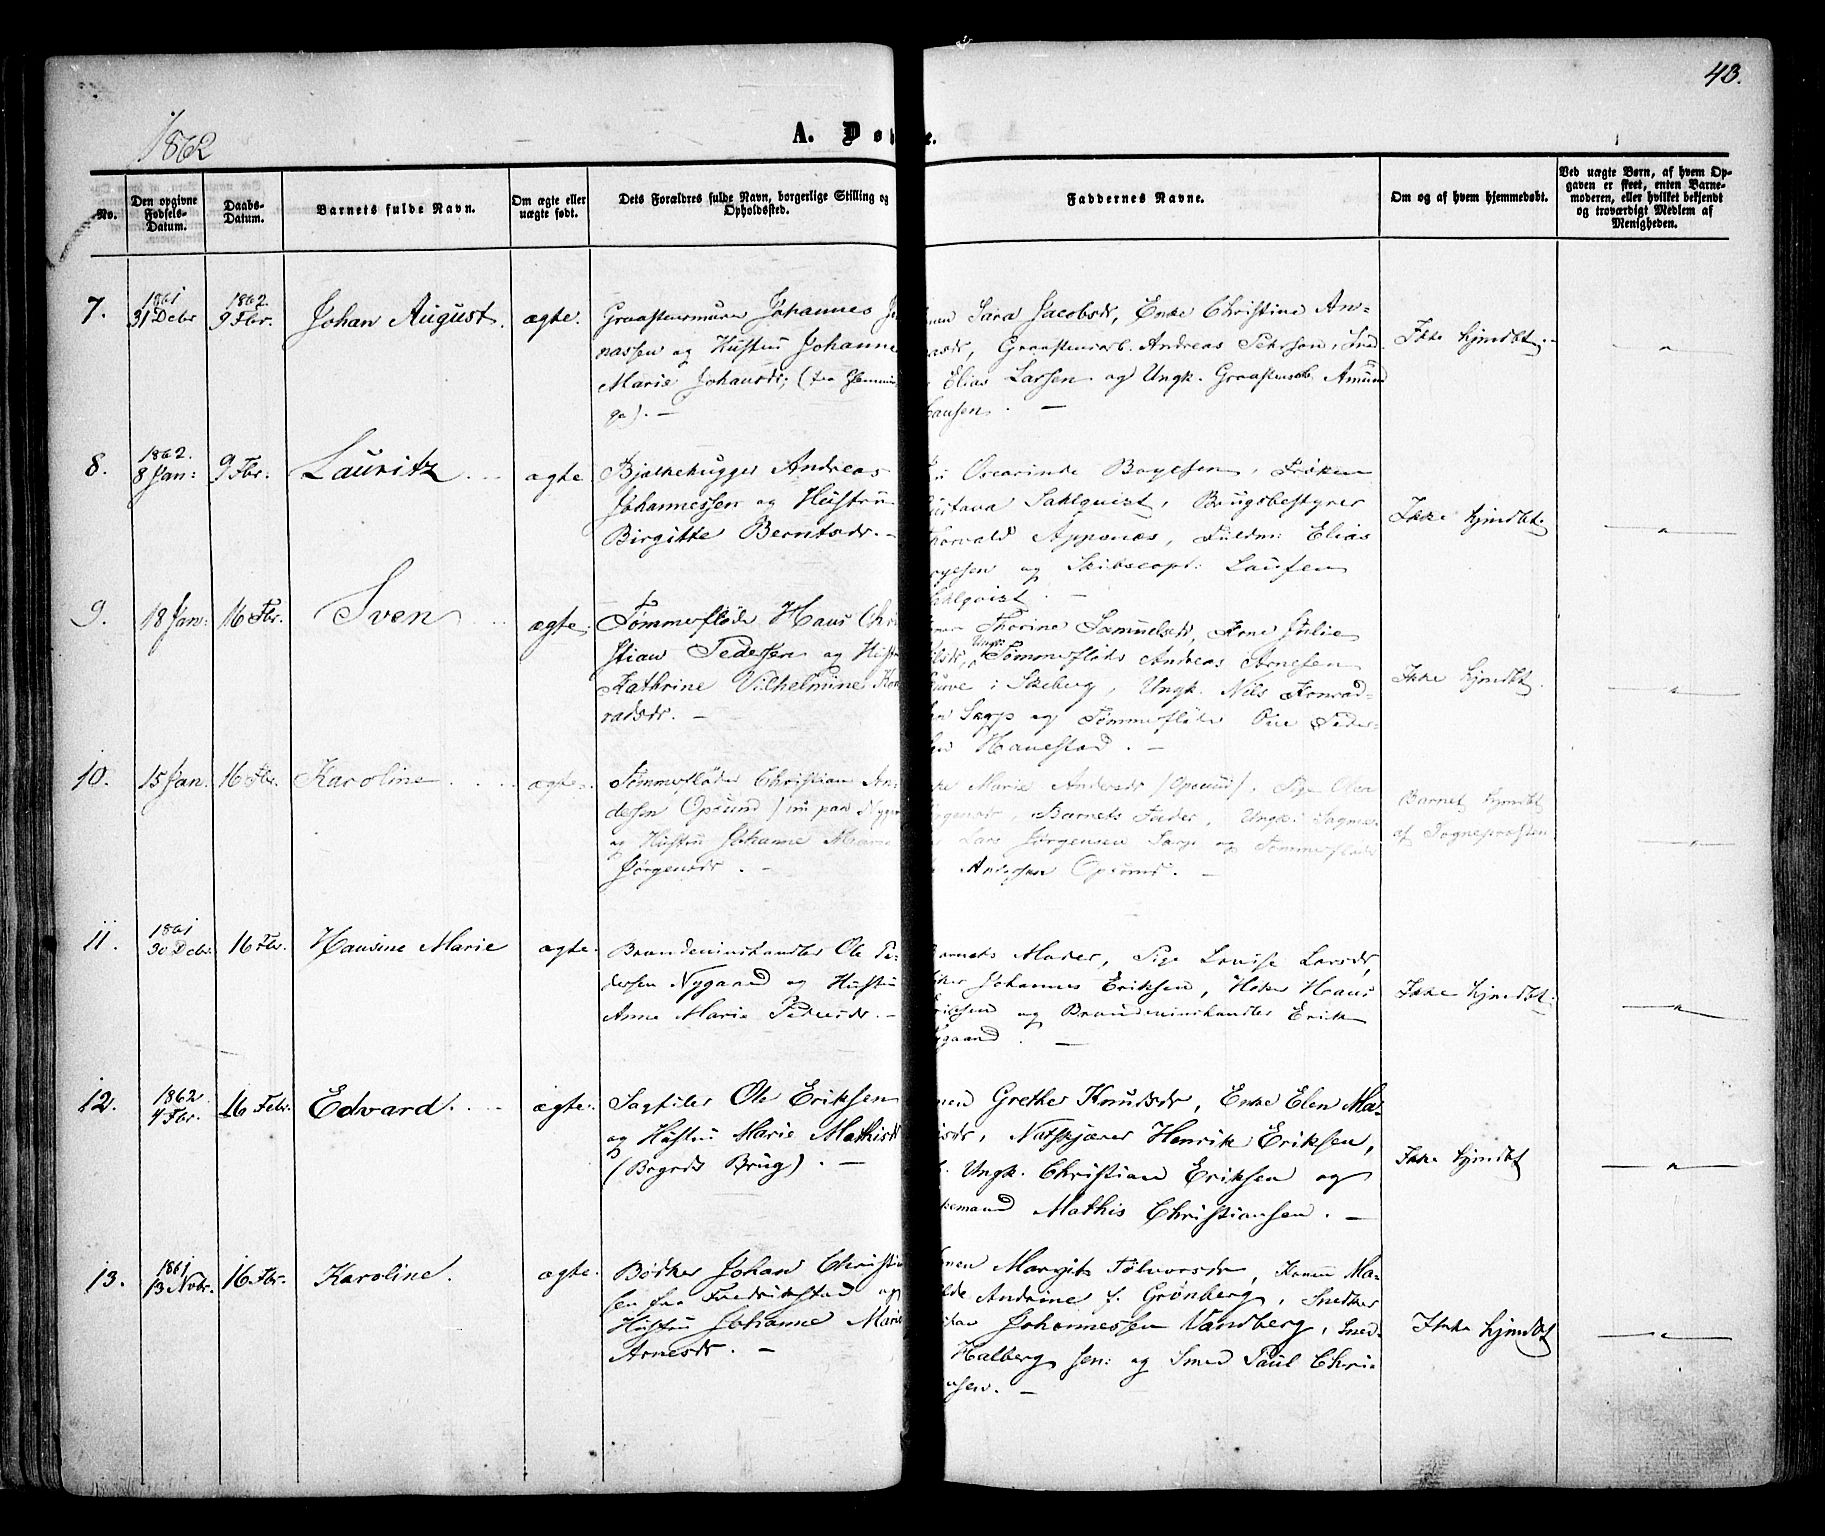 43.
1862
A. Dø e.
No.
Den opgivne Fødsels-Datum.
Daabs-Datum.
Barnets fulde Navn.
Om ægte eller uægte født.
Dets Forældres fulde Navn, borgerlige Stilling og Opholdssted.
Faddernes Navne.
Om og af hvem hjemmedøbt.
Ved uægte Børn, af hvem Opgaven er skeet, enten Barnemoderen, eller hvilket bekjendt og troværdigt Medlem af Menigheden.
7. 1861 31 Debr 1862. 9 Fbr. Johan August. ægte.
Graastensmurer Johannes
nassen og Hustru Johanne
Marie Johansdr; (fra
ge). —
Sara Jacobsdr, Enke Christine An-
Graastensarb. Andreas Pehrson,
Elias Larsen og Ungk. Graastensarb. Amund
hansen. —
Ikke hjmdbt.
8. 1862. 8 Jan: 9 Fbr. Lauritz ægte
Bjælkehugger Andreas
Johannessen og Hustru
Birgitte Berntsdr. —
Oscarinde Boyesen, Frøken
Sahlqvist, Brugsbestyrer
Appenæs, Fuldm: Elias
og Skibscapt: Laufen
ahlqvist. —
Ikke hjmdbt.
9. 18 Jan: 16 Fbr. Sven ægte.
Tømmerfløder Hans Chri
stian Pedersen og Hust
Kathrine Vilhelmine Kon
radsdr. —
Thorine Samuelsdr, Kone Julie
Ungk. Tømmerfløder Andreas Arnesen
i Skeberg, Ungk. Nils Konrad-
Sarp og Tømmerfløder Ole Peder-
Hanestad. —
Ikke hjmdbt.
10. 15 Jan. 16 Fbr. Karoline ægte.
Tømmerfløder Christian An
dersen (Opsund)
og Hustru Johanne Marie
Jørgensdr. —
Marie Andersdr (Opsund), Pige Olen
Barnets Fader, Ungk:
Lars Jørgensen Sarp og Tømmerfløder
Andersen Opsund. —
Barnet hjmdbt
af Sognepresten
11. 1861 30 Debr. 16 Fbr. Hansine Marie ægte.
Brændevinshandler Ole Pe-
dersen Nygaard og Hustru
Anne Marie Pedersdr. —
Barnets Moder, Pige Lovise Larsdr,
Johannes Eriksen, Høker Hans
og Brændevinshandler Erik
ygaard. —
Ikke hjmdbt.
12. 1862 4 Fbr. 16 Febr. Edvard. ægte.
Sagfiler Ole Eriksen
og Hustru Marie Mathisdr
(Borgeds Brug). —
Grethe Knudsdr, Enke Elen Ma-
Natskjærer Henrik Eriksen,
Ungk. Christian Eriksen og
kemand Mathis Christiansen. —
Ikke hjmdbt
13. 1861 13 Novbr. 16 Fbr. Karoline. ægte.
Bødker Johan Christia
sen fra Fredrikstad og
Hustru Johanne Marie
Arnesdr. —
Margit Tolvorsdr, Konen Ma-
Andrine f. Grønberg, Snedker
Johannessen Vandberg, Sned-
Halberg sen: og Smed Paul Chri-
ansen. —
Ikke hjmdbt